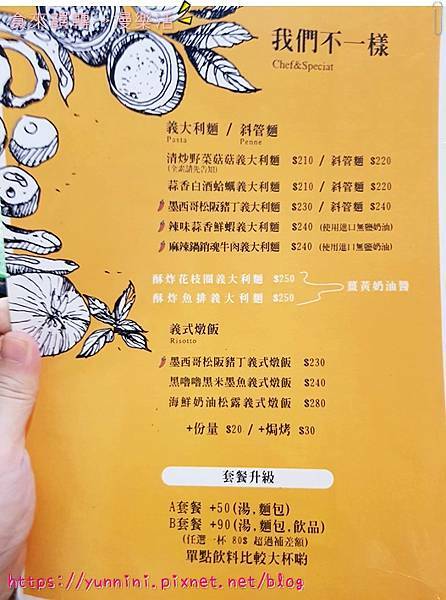 我們不一樣
Chef&Speciat
義大利麵 / 斜管麵
Pasta Penne
清炒野菜菇菇義大利麵 $210 / 斜管麵 $220
(全素請先告知)
蒜香白酒蛤蠣義大利麵 $210 / 斜管麵 $220
墨西哥松阪豬丁義大利麵 $230 / 斜管麵 $240
辣味蒜香鮮蝦義大利麵 $240 (使用進口無鹽奶油)
麻辣鍋銷魂牛肉義大利麵 $240 (使用進口無鹽奶油)
酥炸花枝圈義大利麵 $250
酥炸魚排義大利麵 $250
薑黃奶油醬
義式燉飯
Risotto
墨西哥松阪豬丁義式燉飯 $230
黑嚕嚕黑米墨魚義式燉飯 $240
海鮮奶油松露義式燉飯 $280
+份量 $20 / +焗烤 $30
套餐升級
A套餐 +50(湯,麵包)
B套餐 +90(湯,麵包.飲品)
(任選一杯 80$ 超過補差額)
單點飲料比較大杯喲
https://yunnini.pixnet.net/blog